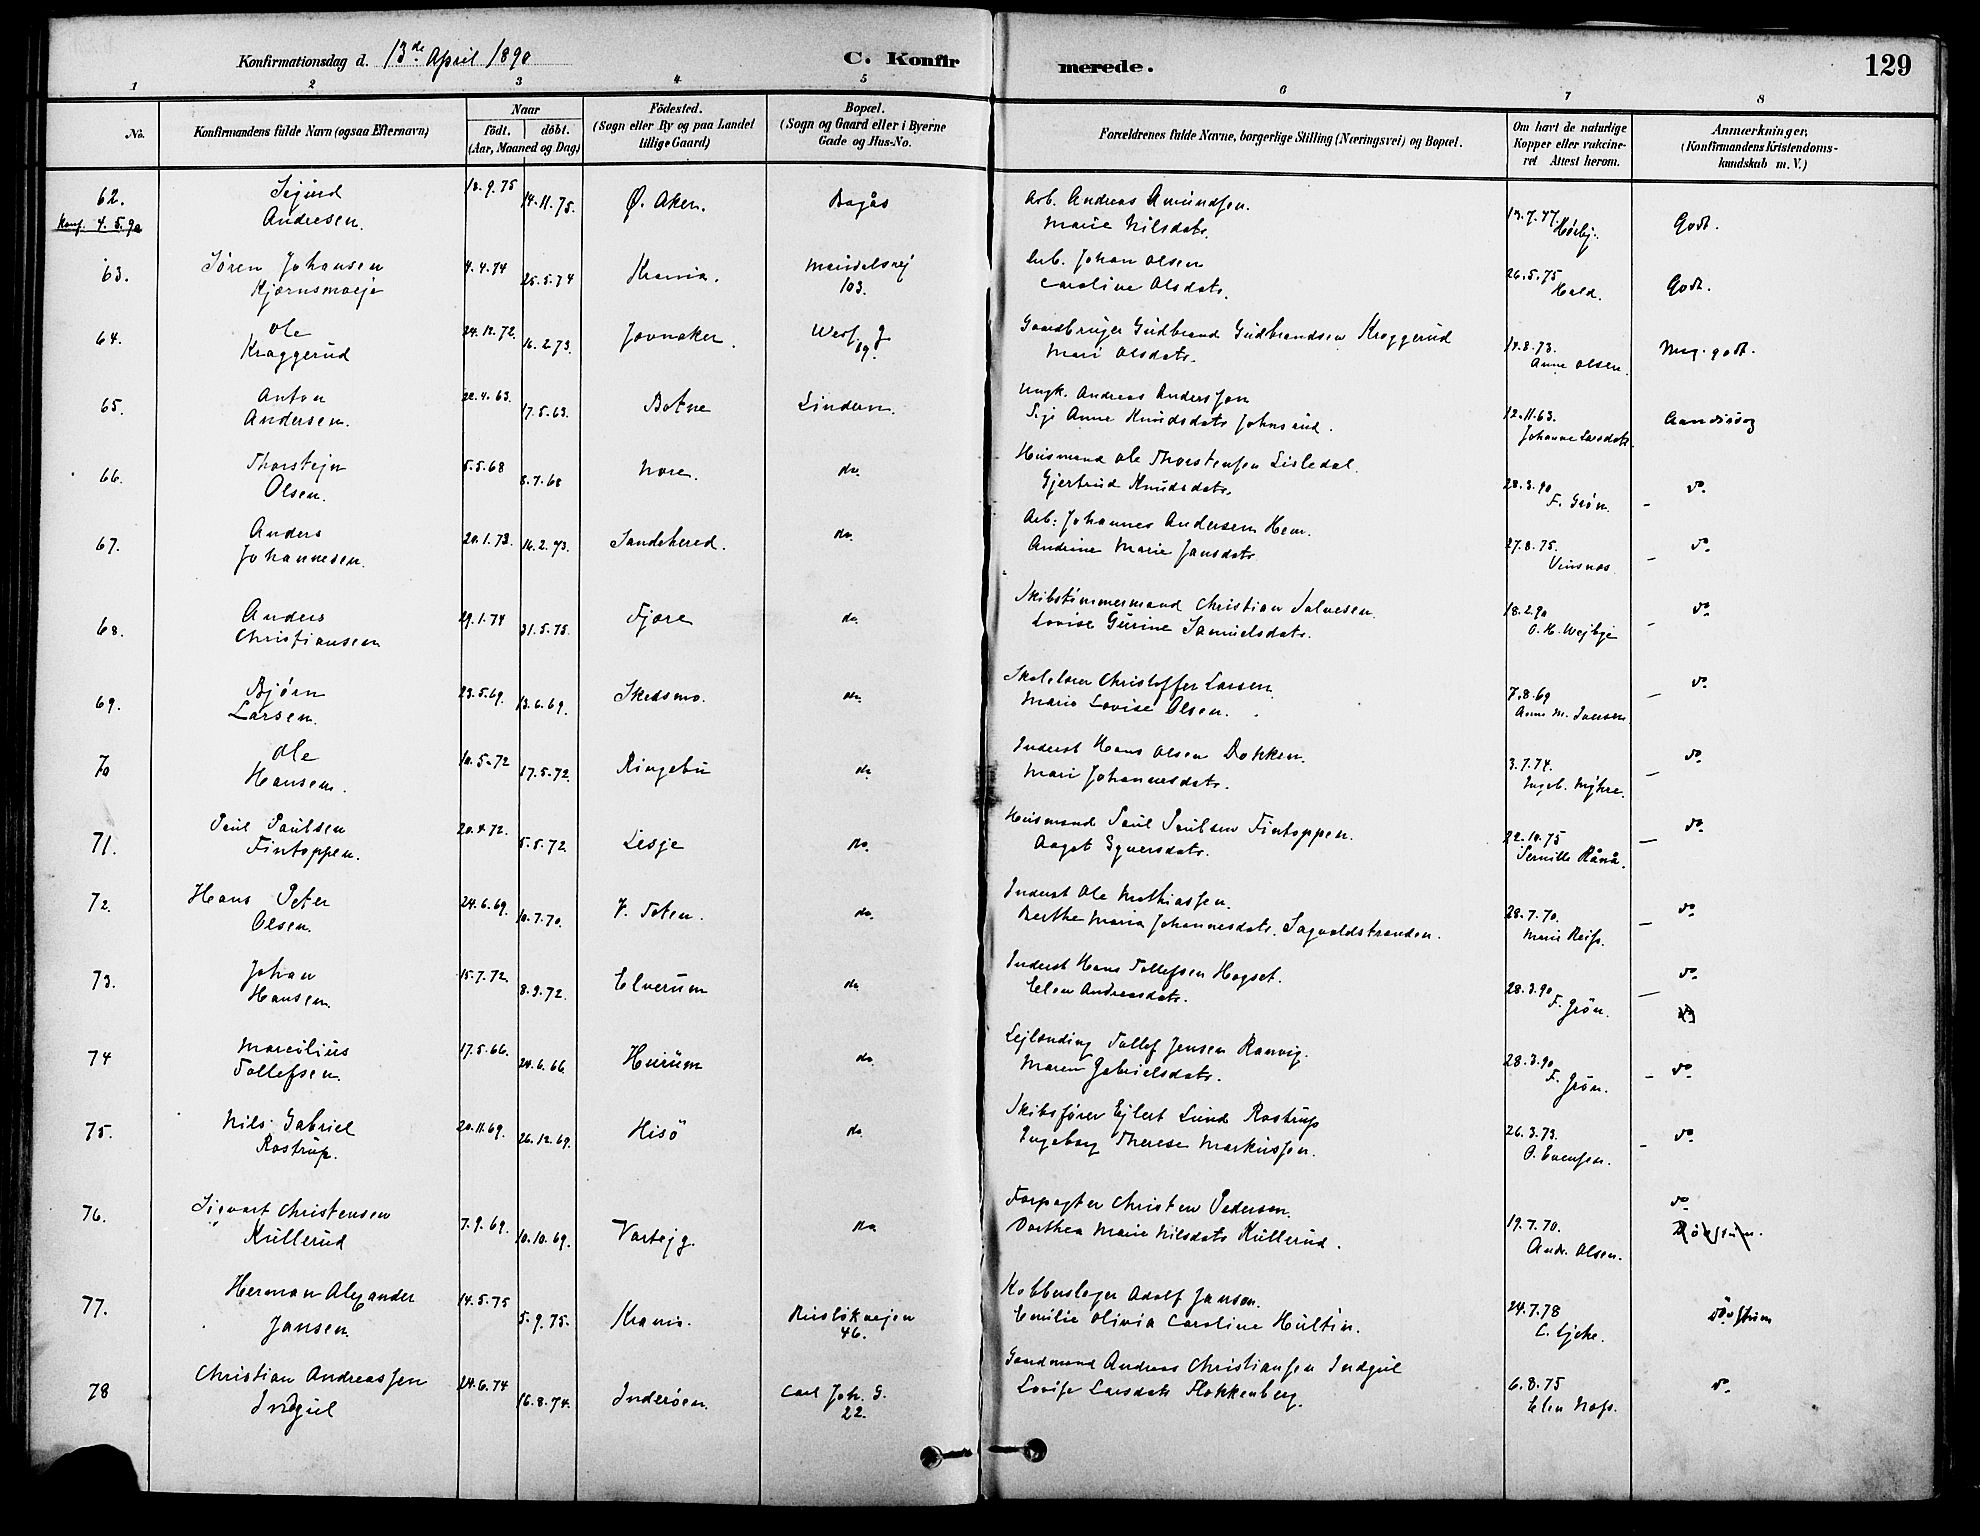 Konfirmationsdag d. 13de April 1890
C. Konfirmerede.
129
1 2 3 4 5 6 7 8
No.
Konfirmandens fulde Navn (ogsaa Efternavn)
Naar
födt. döbt.
(Aar, Maaned og Dag)
Födested.
(Sogn eller By og paa Landet
tillige Gaard)
Bopæl.
(Sogn og Gaard eller i Byerne
Gade og Hus-No.
Forældrenes fulde Navne, borgerlige Stilling (Næringsvei) og Bopæl.
Om havt de naturlige
Kopper eller vakcine-
ret Attest herom.
Anmærkninger,
(Konfirmandens Kristendoms-
kundskab m. V.)
62. Sigurd 13.9.75 14.11.75. Ø. Aker. Bogås Arb. Andreas Amundsen. 13.7.77. Godt.
Konf. 4.5.90 Andresen. Marie Nilsdatr.
63. Søren Johansen 4.4.74 25.5.74 Krania. 103. Arb. Johan Olsen 26.5.75 Godt.
Caroline Olsdatr. Hald.
64. Ole 24.12.72. 16.2.73. Jevnaker. 19. Gaardbruger Gudbrand Gudbrandsen Kroggerud 14.8.73. Mg. godt.
Kroggerud Mari Olsdatr. Anne Olsen.
65. Anton 22.4.63. 17.5.63. Botne Lindern. Ungk. Andreas Anderssen 12.11.63. Aandssvag
Andersen. Pige Anne Knudsdatr Johnsrud. Johanne Larsdatr.
66. Thorstejn 5.5.68 8.7.68 Nore. do. Husmand Ole Thorstensen Lisledal. 28.3.90 — do.
Olsen. Gjertrud Knudsdatr. F. Grøn.
67. Anders 20.1.73. 16.2.73. Sandeherred. do. Arb: Johannes Andersen Hem. 27.8.75. — do.
Johannesen. Andrine Marie Jansdatr
68. Anders 29.1.74 31.5.75. Fjære do. Skibstømmermand Christian Salvesen. 18.2.90 — do.
Christiansen Lovise Gurine Samuelsdatr. O. H. Wejbye
69. Bjørn 23.5.69. 13.6.69. Skedsmo. do. Skolelærer Christoffer Larsen. 7.8.69 — do.
Larsen. Marie Lovise Olsen. Anne M. Iversen
70 Ole 10.5.72 17.5.72. Ringebu do Inderst Hans Olsen Dokken. 3.7.74. — do.
Hansen. Mari Johannesdatr. Ingeb. Myhre.
71. Paul Paulsen 20.4.72. 5.5.72. Lesje do. Husmand Paul Paulsen Fintoppen. 22.10.75 — do.
Fintoppen. Aagot Syversdatr. Pernille Rånå.
72. Hans Peter 24.6.69. 10.7.70. V. Toten. do. Inderst Ole Mathiassen. 28.7.70. — do.
Olsen. Berthe Maria Johannesdatr. Sagvoldstranden.
73. Johan 15.7.72. 8.9.72. Elverum do. Inderst Hans Tollefsen Hagset. 28.3.90 — do.
Hansen. Elen Andreasdatr. F. Grøn.
74 Marcilius 17.5.66. 24.6.66. Hurum do. Lejlænding Tollef Jensen Ramvig. 28.3.90 — do.
Tollefsen. Maren Gabrielsdatr. F. Grøn.
75. Nils Gabriel 20.11.69. 26.12.69. Hisö do. Skibsfører Ejlert Lund Rostrup 26.3.73. — do.
Rostrup. Ingeborg Therese Markussen. O. Evensen.
76. Sigvart Christensen 7.9.69. 10.10.69. Vartejg. do. Forpagter Christen Pedersen. 19.7.70. do
Kullerud Dorthea Marie Nilsdatr Kullerud. Andr. Olsen. Døvstum.
77. Herman Alexander 14.5.75 5.9.75. Krania. Ruslökvejen Kobberslager Adolf Jansen. 24.7.78 Dövstum
Jansen. 46. Emilie Olivia Caroline Hultin.
78 Christian Andreassen 24.6.74 16.8.74. Inderöen. Carl Joh. G. Gaardmand Andreas Christiansen Indgul 6.8.75 do.
Indgul 22. Lovise Larsdatr Flokkenberg.